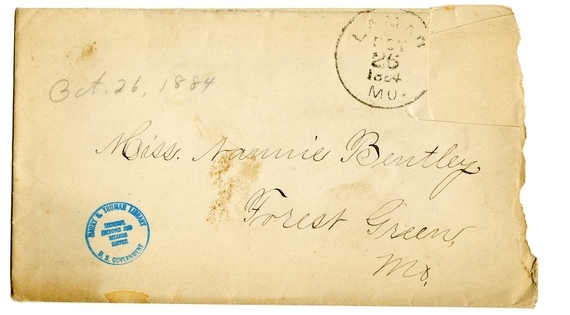 LAMAR
OCT
26
1884
MO.
Oct. 26, 1884
Miss. Nannie Bentley
Forest Green,
Mo.
HARRY S. TRUMAN LIBRARY
NATIONAL
ARCHIVES AND
RECORDS
SERVICE
U. S. GOVERNMENT